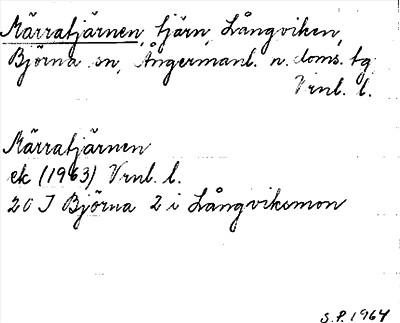 Märratjärnen, tjärn, Långviken,
Björna sn, Ångermanl. n. doms. tg.
Vrnl. l.
Märratjärnen
ek (1963) Vrnl. l.
20 I Björna 2 i Långviksmon
S.P. 1964